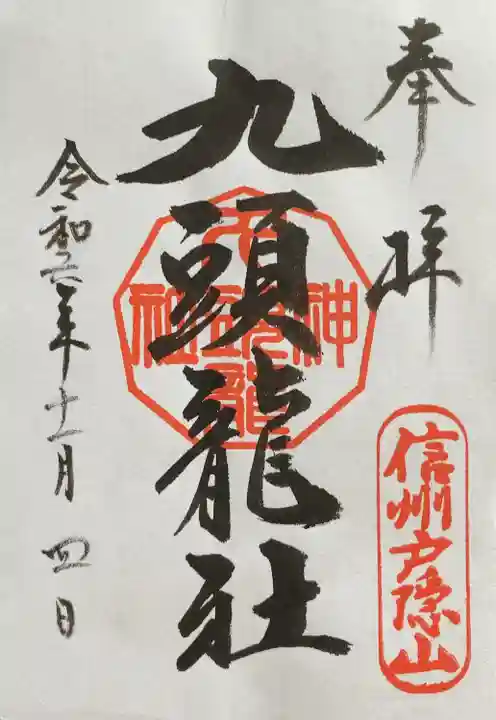 奉拝
信州戸隠山
九頭龍社
令和六年十一月四日